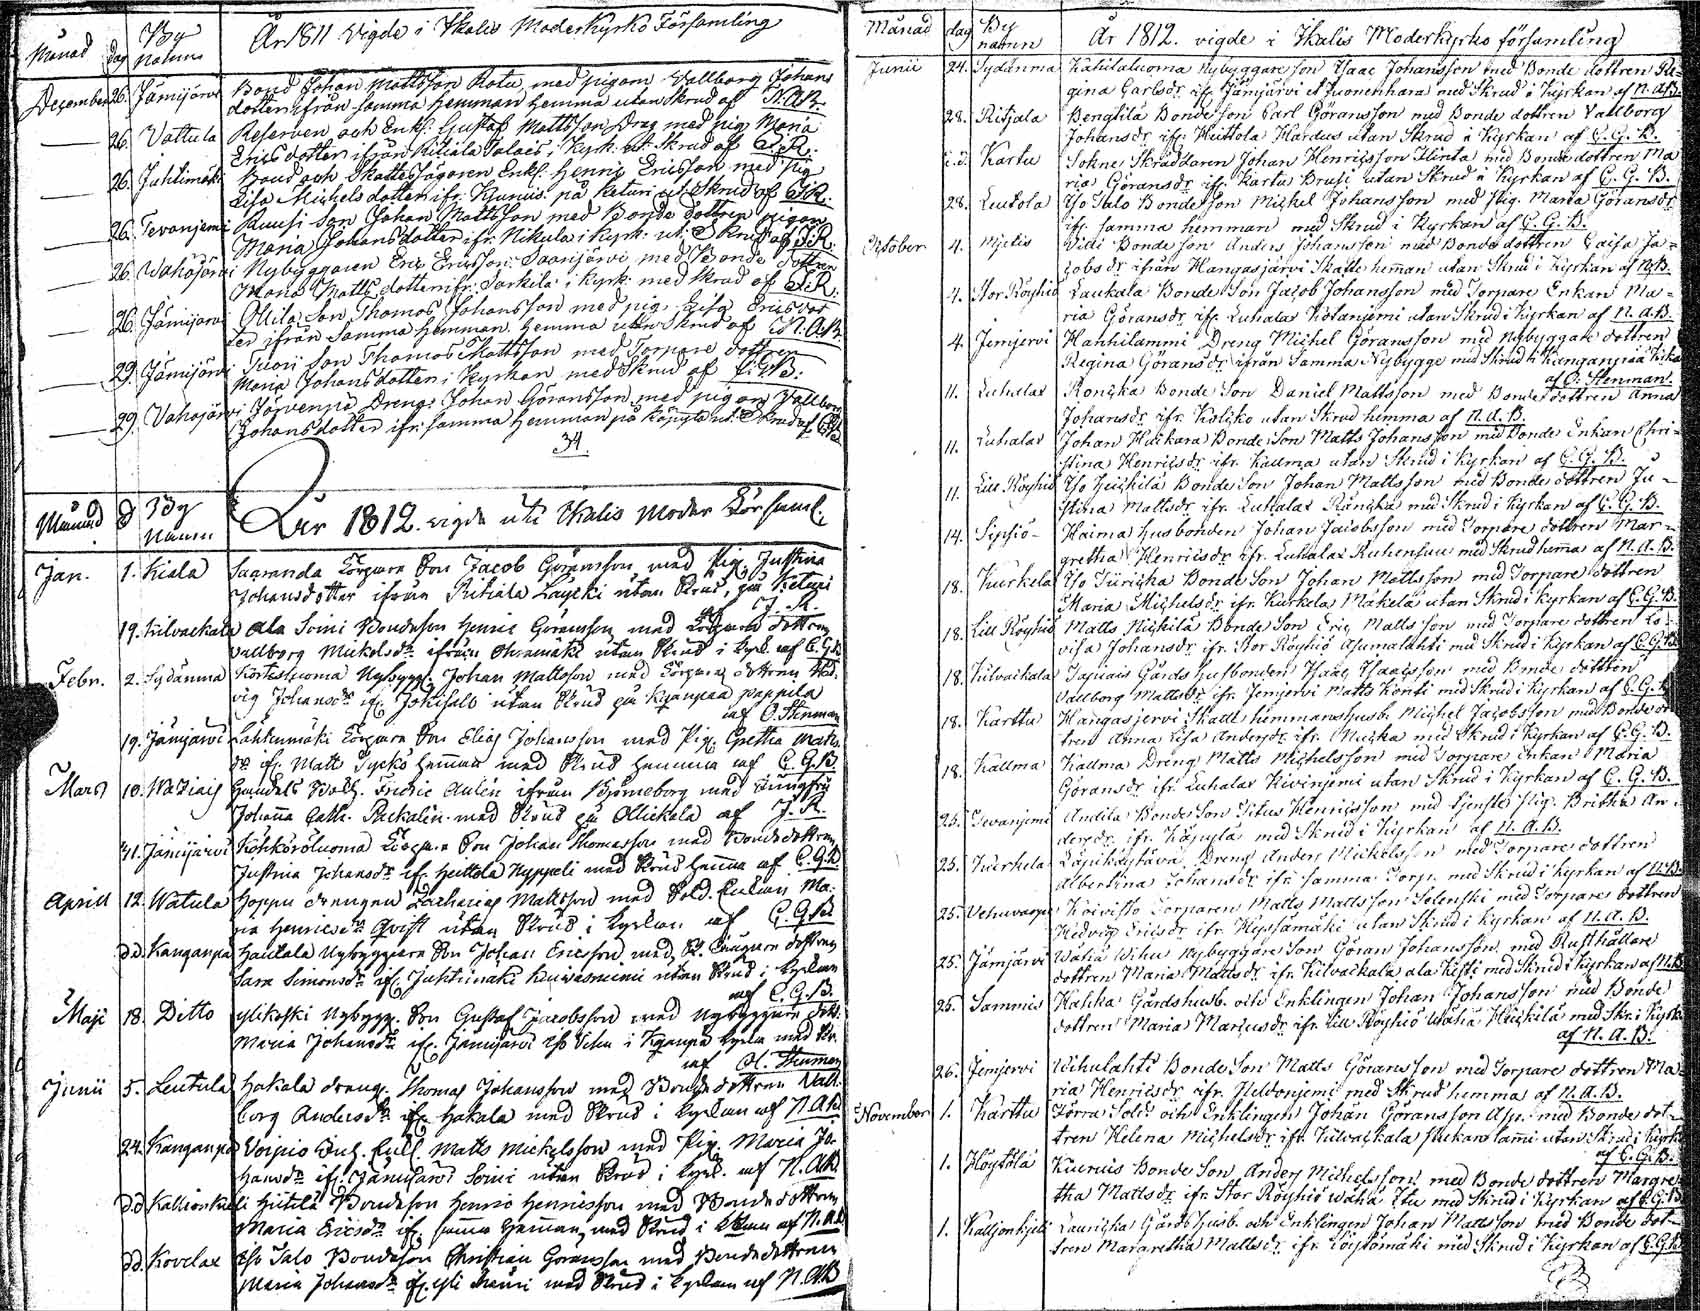 År 1811 Vigde i Ikalis Moderkyrko Församling
Månad dag By Namn
December 26. Jämijärvi Bond Johan Mattsson Rotu med pigan Vallborg Johans
dotter ifrån samma Hemman hemma utan Skrud af N.A.B.
26. Vattula Reserven och Enkl. Gustaf Mattsson Dreg med pig. Maria
Ericsdotter ifrån Ritiala i Kyrk. ut. Skrud af J.R.
26. Juhtimäki Bond och Skattefogaren Enkl. Henric Ericsson med pig.
Lisa Michelsdotter ifr. Kyrönis på Keturi ut. Skrud af J.R.
26. Tevanjemi Ruusi Son Johan Mattsson med Bonde dottren pigan
Maria Johansdotter ifr. Nikula i Kyrk. ut. Skrud af J.R.
26. Wahojärvi Nybyggaren Eric Ericsson Saarijärvi med Bonde dottren
Maria Mattsdotter ifr. Sarkila i Kyrk. med Skrud af J.R.
26. Jämijärvi Ollila Son Thomas Johansson med pig. Lisa Ericsdot
ter ifrån Samma Hemman hemma utan Skrud af N.A.B.
29. Jämijärvi Tuori Son Thomas Mattsson med Torpare dottren
Maria Johansdotter i Kyrkan med Skrud af C.G.B.
29. Vahojärvi Järvenpä Dreng Johan Göransson med pigan Vallborg
Johansdotter ifr. samma Hemman på ut. Skrud af C.G.B.
34.
Månad d By Namn
Åhr 1812. vigde uti Ikalis Moder Församl.
Jan. 1. Kiala Saaranda Torpare Son Jacob Göransson med Pig. Justina
Johansdotter ifrån Ritiala Läycki utan Skrud, på Keturi
af J.R.
19. Kilvackala Ala Soini Bondeson Henric Göransson med Torpare dottren
Vallborg Mickelsdr ifrån utan Skrud i Kyrk. af C.G.B
Febr. 2. Sydänma Kortesluoma Nybygg. Johan Mattsson med Torpare dottren Hed-
vig Johansdr ifr. Jokisalo utan Skrud på Kyanpää pappila
af O. Stenman
19. Jämijärvi Lähtenmäki Torpare Son Elias Johansson med Pig. Gretha Matts
dr ifr. Matts Tyckö hemman med Skrud hemma af C.G.B.
Mars 10. Watiais Handels Bokh. Fredric Aulén ifrån Björneborg med Jungfru
Johanna Cath. Packalén med Skrud på Ollickala af J.R.
31. Jämijärvi Köhköröluoma Torpare Son Johan Thomasson med Bonde dottren
Justina Johansdr ifr. Heittola Nyppeli med Skrud hemma af C.G.B
April 12. Watula Hoppu drengen Zacharias Mattsson med Sold. Enkan Ma-
ria Henricsdr Qvist utan Skrud i Kyrkan af C.G.B
dd. Kanganpä Hautala Nybyggare Son Johan Ericsson med St. Torpare dottren
Sara Simonsdr ifr. Juhtimäki utan Skrud i Kyrkan
af C.G.B.
Maji 18. Ditto Ylikoski Nybygg. Son Gustaf Jacobsson med Nybyggare dott.
Maria Johansdr ifr. Jämijärvi Yso Vihu i Kganpä Kyrka med Skr.
af O. Stenman
Junii 5. Leutula Hakala dreng. Thomas Johansson med Bonde dottren Vall-
borg Andersdr ifr. Hakala med Skrud i Kyrkan af N.A.B
24. Kanganpä Voipio Enkl. Matts Mickelsson med Pig. Maria Jo-
hansdr ifr. Jämijärvi Soini utan Skrud i Kyrk. af N.A.B.
dd Kallionkieli Hittilä Bondeson Henric Henricsson med Bonde dottren
Maria Ericsdr ifr. samma Hemman med Skrud i Kyrkan af N.A.B
dd. Kovelax Yso Salo Bondeson Christian Göransson med Bonde dottren
Maria Johansdr ifr. Yli Mäuri med Skrud i Kyrkan af N.A.B
Månad dag By namn
År 1812. vigde i Ikalis Moderkyrko församling
Junii 24. Sydänma Katiluluoma Nybyggare Son Isaac Johansson med Bonde dottren Re-
gina Carlsdr ifr. Jämjärvi Vuorenhara med Skrud i Kyrkan af N.A.B.
28. Ritjala Benghila Bonde Son Carl Göransson med Bonde dottren Vallborg
Johansdr ifr. Heittola Hardus utan Skrud i Kyrkan af C.G.B.
d.d. Kartu Sokne Skräddaren Johan Henricsson Flinta med Bonde dottren Ma
ria Göransdr ifr. Kartu Brusi utan Skrud i Kyrkan af C.G.B.
28. Leutola Yso Salo Bonde Son Michel Johansson med Pig. Maria Göransdr
ifr. samma hemman med Skrud i Kyrkan af C.G.B.
October 4. Mjelis Vidi Bonde Son Anders Johansson med Bonde dottren Caisa Ja-
cobsdr ifrån Hangasjärvi Skatte heman utan Skrud i Kyrkan af N.B.
4. Stor Röyhiö Laukala Bonde Son Jacob Johansson med Torpare Enkan Ma-
ria Göransdr ifr. Luhalax Kotanjemi utan Skrud i Kyrkan af N.A.B.
4. Jemjervi Hanhilammi Dreng Michel Göransson med Nybyggare dottren
Regina Göransdr ifrån Samma Nybygge med Skrud i Kanganpää Kirka
af O. Stenman.
11. Luhalax Ronghka Bonde Son Daniel Mattsson med Bonde dottren Anna
Johansdr ifr. Kosliko utan Skrud hemma af N.A.B.
11. Luhalax Johan Huskara Bonde Son Matts Johansson med Bonde Enkan Chri-
stina Henricsdr ifr. Kallma utan Skrud i Kyrkan af C.G.B.
11. Lill Röyhiö Yso Heickilä Bonde Son Johan Mattsson med Bonde dottren Ju-
stina Mattsdr ifr. Luhalax Röngka med Skrud i Kyrkan af C.G.B.
14. Sipsiö Haima husbonden Johan Jacobsson med Torpare dottren Mar-
gretha Henricsdr ifr. Luhalax Ruhensuu med Skrud hemma af N.A.B.
18. Kurkela Yso Turicka Bonde Son Johan Mattsson med Torpare dottren
Maria Michelsdr ifr. Kurkela Mäkelä utan Skrud i Kyrkan af C.G.B
18. Lill Röyhiö Matts Heickilä Bonde Son Eric Mattsson med Torpare dottren Lo-
visa Johansdr ifr. Stor Röyhiö Asumalahti med Skrud i Kyrkan af C.G.B.
18. Kilvackala Jaguais Gårds husbonden Isaac Isaacsson med Bonde dottren
Vallborg Mattsdr ifr. Jemjervi Matts Konti med Skrud i Kyrkan af C.G.B
18. Karttu Hangasjervi Skatte hemmans husb. Michel Jacobsson med Bonde dot-
tren Anna Lisa Andersdr ifr. Muicka med Skrud i Kyrkan af C.G.B.
18. Kallma Kallma Dreng Matts Michelsson med Torpare Enkan Maria
Göransdr ifr. Luhalax Kivinjemi utan Skrud i Kyrkan af C.G.B.
25. Tevanjemi Andila Bonde Son Titus Henricsson med tjenste Pig. Britha An-
dersdr ifr. Käjngla med Skrud i Kyrkan af N.A.B.
25. Kurkela Löpickojtäva Dreng Anders Mickelsson med Torpare dottren
Albertina Johansdr ifr. samma Torp. med Skrud i Kyrkan af N.B.
25. Vehuvarpe Koivisto Torparen Matts Mattsson Solenski med Torpare dottren
Hedvig Ericsdr ifr. Heyssämäki utan Skrud i Kyrkan af N.A.B.
25. Jämjärvi Wähä Wihu Nybyggare Son Göran Johansson med Rusthållare
dottren Maria Mattsdr ifr. Kilvackala ala Kesti med Skrud i Kyrkan af N.B
25. Sammis Hahka Gårdshusb. och Enklingen Johan Johansson med Bonde
dottren Maria Marcusdr ifr. Lill Röyhiö Wähä Heickilä med Skr. i Kyrka
af N.A.B.
26. Jemjervi Wihulahti Bonde Son Matts Göransson med Torpare dottren Ma-
ria Henricsdr ifr. Neldonjemi med Skrud hemma af N.A.B.
November 1. Karttu Förra Sold. och Enklingen Johan Göransson Asp. med Bonde dot-
tren Helena Michelsdr ifr. Kilvackala Puckanlami utan Skrud i Kyrk
af C.G.B.
1. Höytölä Kiurius Bonde Son Anders Michelsson med Bonde dottren Margre-
tha Mattsdr ifr. Stor Röyhiö Wähä Etu med Skrud i Kyrkan af C.G.B
1. Kalljonkjeli Lauricka Gårds husb. och Enklingen Johan Mattsson med Bonde dot-
tren Margretha Mattsdr ifr. Röystömäki med Skrud i Kyrkan af C.G.B